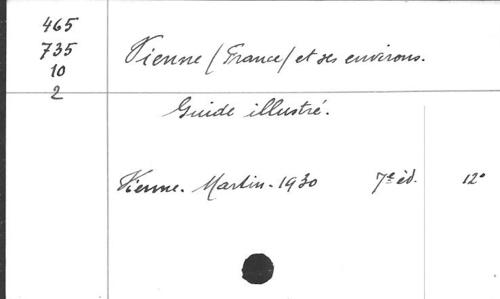 465
735
10
2
Vienne (France) et ses environs.
Guide illustré.
Vienne. Martin. 1930 7e éd. 12°